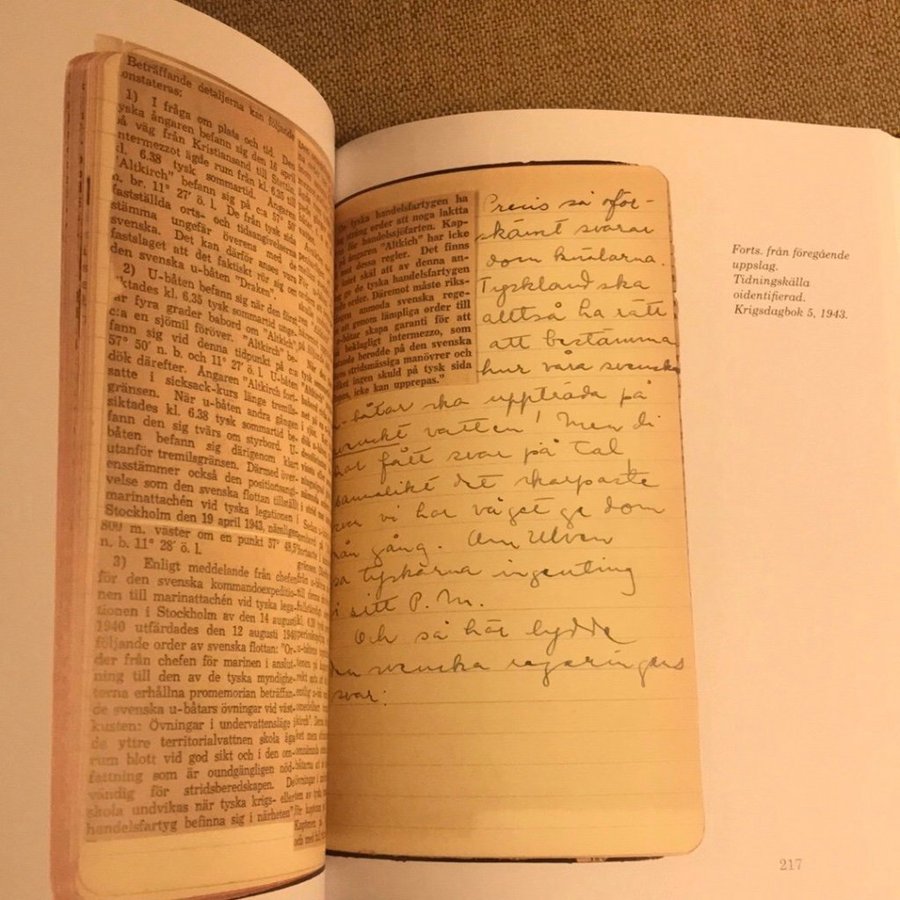 Beträffande detaljerna kan följande
onstateras:
1) I fråga om plats och tid. Den
yska ångaren befann sig den 16 april
på väg från Kristiansand till Stettin.
Intermezzot ägde rum från kl. 6.35 till
kl. 6.38 tysk sommartid. Ångaren
"Altkirch" befann sig på c:a 57° 50'
n. br. 11° 27' ö. l. De från tysk sida
fastställda orts- och tidsangivelserna
stämma ungefär överens med de
svenska. Det kan därför anses vara
fastslaget att det faktiskt rör sig om
den svenska u-båten "Draken".
2) U-båten befann sig när den först
siktades kl. 6.35 tysk sommartid
ar fyra grader babord om "Altkirch"
c:a en sjömil föröver. "Altkirch" be-
fann sig vid denna tidpunkt på c:a
57° 50' n. b. och 11° 27' ö. l. U-båten
dök därefter. Ångaren "Altkirch fort-
satte i sicksack-kurs länge tremils-
gränsen. När u-båten andra gången
siktades kl. 6.38 tysk sommartid be-
fann den sig tvärs om styrbord. U-
båten befann sig därigenom klart
utanför tremilsgränsen. Därmed över-
ensstämmer också den positionsangi-
velse som den svenska flottan tillställt
marinattachén vid tyska legationen i
Stockholm den 19 april 1943, nämligen
800 m. väster om en punkt 57° 48,5'
n. b. 11° 28' ö. l.
3) Enligt meddelande från chefen
för den svenska kommandoexpeditio-
nen till marinattachén vid tyska lega-
tionen i Stockholm av den 14 augusti
1940 utfärdades den 12 augusti 1940
följande order av svenska flottan: "Or-
der från chefen för marinen i anslut-
ning till den av de tyska myndighe-
terna erhållna promemorian beträffan-
de svenska u-båtars övningar vid väst-
kusten: Övningar i undervattensläge i
de yttre territorialvattnen skola äga
rum blott vid god sikt och i den om-
fattning som är oundgängligen nöd-
vändig för stridsberedskapen. De
skola undvikas när tyska krigs- eller
handelsfartyg befinna sig i närheten"
De tyska handelsfartygen ha
sträng order att noga iaktta
för handelssjöfarten. Kap-
å ångaren "Altkich" har icke
mot dessa regler. Det finns
skäl att av denna an-
ge de tyska handelsfartygen
order. Däremot måste riks-
anmoda svenska rege-
att genom lämpliga order till
båtar skapa garanti för att
beklagligt intermezzo, som
berodde på den svenska
stridsmässiga manövrer och
ingen skuld på tysk sida
icke kan upprepas."
Precis så oför-
skämt svarar
dom knölarna.
Tyskland ska
alltså ha rätt
att bestämma
hur våra svenska
-båtar ska uppträda på
svenskt vatten! Men di
har fått svar på tal
sannolikt det skarpaste
svar vi har vågat ge dom
nån gång. Om Ulven
sa tyskarna ingenting
i sitt P.M.
Och så här lydde
den svenska regeringens
svar:
Forts. från föregående
uppslag.
Tidningskälla
oidentifierad.
Krigsdagbok 5, 1943.
217